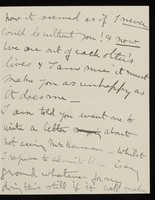 now it seemed as if I never
could be without you! & now
we are out of each other's
lives & I am sure it must
make you as unhappy as
it does me
I am told you want me to
write a letter about
not seeing — whilst
I refuse to admit there is any
ground whatever for my
doing this still if it will make